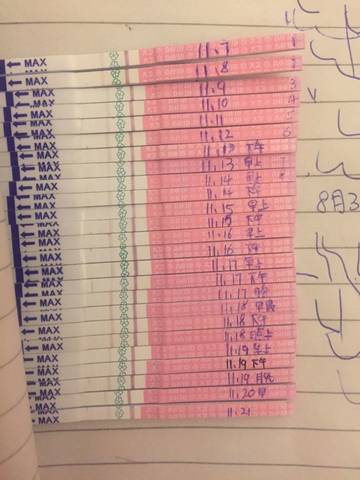 ← MAX 11.7 1
← MAX 11.8 2
← MAX 11.9 3
← MAX 11.10 4
← MAX 11.11 5
← MAX 11.12 6
← MAX 11.13 下午
← MAX 11.13 早上 7
← MAX 11.14 早上 8
← MAX 11.14 下午
← MAX 11.15 早上
← MAX 11.15 下午
← MAX 11.16 早上
← MAX 11.16 下午
← MAX 11.17 早上
← MAX 11.17 下午
← MAX 11.17
← MAX 11.18 早晨
← MAX 11.18 下午
← MAX 11.18 晚上
← MAX 11.19 早上
← MAX 11.19 下午
← MAX 11.19
← MAX 11.20 早
← MAX 11.21
8月3